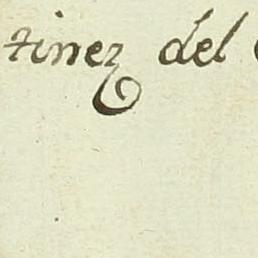 tinez del